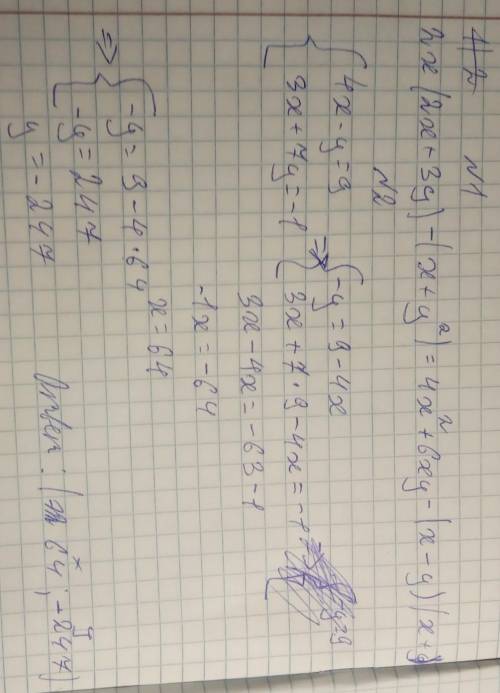 N1
2x(2x+3y)-(x+y²)=4x²+6xy-(x-y)(x+y)
N2
{ 4x-y=9 => { -y=9-4x
{ 3x+7y=-1 { 3x+7·9-4x=-1
3x-4x=-63-1
-1x=-64
x=64
=> { -y=9-4·64
{ -y=247
y=-247
Ответ: (64; -247)
x y